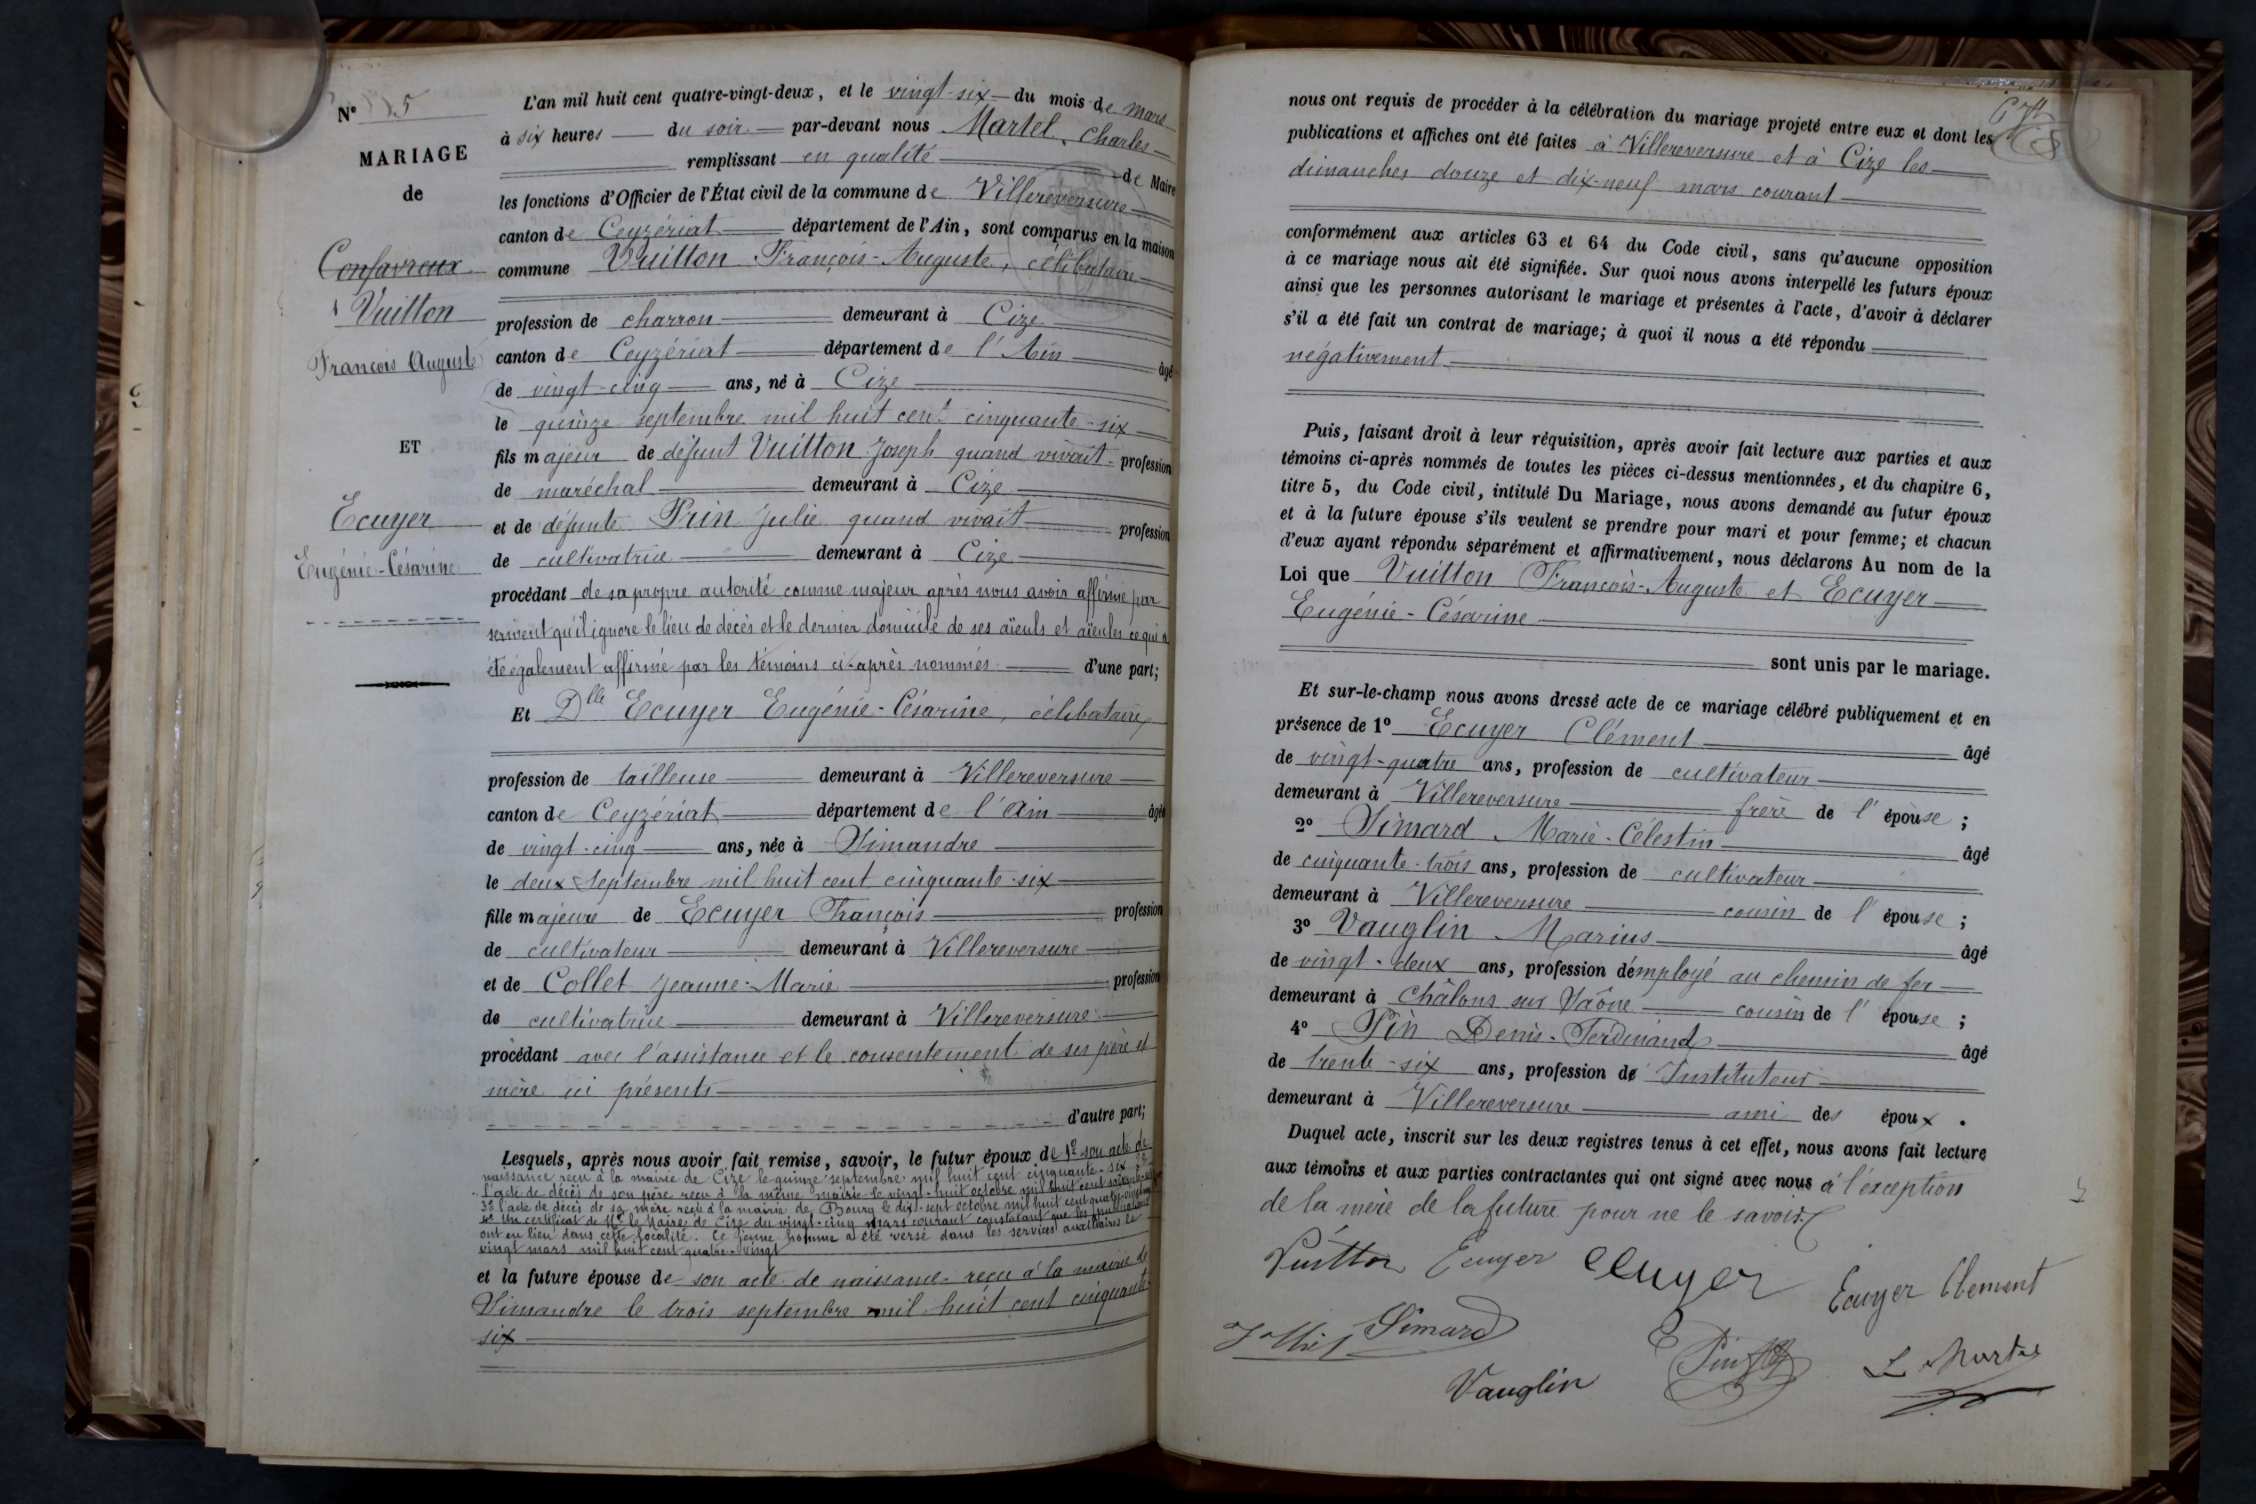 N° 5
MARIAGE
de
Confavreux
Vuitton
François Auguste
ET
Ecuyer
Eugénie-Césarine
L'an mil huit cent quatre-vingt-deux, et le vingt-six du mois de mars
à six heures du soir par-devant nous Martel, Charles
remplissant en qualité de Maire
les fonctions d'Officier de l'État civil de la commune de Villereversure
canton de Ceyzériat département de l'Ain, sont comparus en la maison
commune Vuitton François-Auguste, célibataire
profession de charron demeurant à Cize
canton de Ceyzériat département de l'Ain âgé
de vingt-cinq ans, né à Cize
le quinze septembre mil huit cent cinquante-six
fils majeur de défunt Vuitton Joseph quand vivait profession
de maréchal demeurant à Cize
et de défunte Prin Julie quand vivait profession
de cultivatrice demeurant à Cize
procédant de sa propre autorité comme majeur après nous avoir affirmé par
serment qu'il ignore le lieu de décès et le dernier domicile de ses aïeuls et aïeules ce qui a
été également affirmé par les témoins ci-après nommés d'une part;
Et Dlle Ecuyer Eugénie-Césarine, célibataire,
profession de tailleuse demeurant à Villereversure
canton de Ceyzériat département de l'Ain âgée
de vingt-cinq ans, née à Simandre
le deux Septembre mil huit cent cinquante-six
fille majeure de Ecuyer François profession
de cultivateur demeurant à Villereversure
et de Collet Jeanne-Marie profession
de cultivatrice demeurant à Villereversure
procédant avec l'assistance et le consentement de ses père et
mère ici présents
d'autre part;
Lesquels, après nous avoir fait remise, savoir, le futur époux de 1° son acte de
naissance reçu à la mairie de Cize le quinze septembre mil huit cent cinquante-six 2°
l'acte de décès de son père reçu à la même mairie le vingt-huit octobre mil huit cent
3° l'acte de décès de sa mère reçu à la mairie de Bourg le dix-sept octobre mil huit cent quatre-vingt
4° Un certificat de Mr le Maire de Cize du vingt-cinq mars courant constatant que les publications
ont eu lieu dans cette localité. Ce jeune homme a été versé dans les services auxiliaires le
vingt mars mil huit cent quatre-vingt
et la future épouse de son acte de naissance reçu à la mairie de
Simandre le trois septembre mil huit cent cinquante-
six
nous ont requis de procéder à la célébration du mariage projeté entre eux et dont les
publications et affiches ont été faites à Villereversure et à Cize les
dimanches douze et dix-neuf mars courant
conformément aux articles 63 et 64 du Code civil, sans qu'aucune opposition
à ce mariage nous ait été signifiée. Sur quoi nous avons interpellé les futurs époux
ainsi que les personnes autorisant le mariage et présentes à l'acte, d'avoir à déclarer
s'il a été fait un contrat de mariage; à quoi il nous a été répondu
négativement
Puis, faisant droit à leur réquisition, après avoir fait lecture aux parties et aux
témoins ci-après nommés de toutes les pièces ci-dessus mentionnées, et du chapitre 6,
titre 5, du Code civil, intitulé Du Mariage, nous avons demandé au futur époux
et à la future épouse s'ils veulent se prendre pour mari et pour femme; et chacun
d'eux ayant répondu séparément et affirmativement, nous déclarons Au nom de la
Loi que Vuitton François-Auguste et Ecuyer
Eugénie-Césarine
sont unis par le mariage.
Et sur-le-champ nous avons dressé acte de ce mariage célébré publiquement et en
présence de 1° Ecuyer Clément âgé
de vingt-quatre ans, profession de cultivateur
demeurant à Villereversure frère de l'épouse;
2° Simard Marie-Célestin âgé
de cinquante-trois ans, profession de cultivateur
demeurant à Villereversure cousin de l'épouse;
3° Vauglin Marius âgé
de vingt-deux ans, profession d'employé au chemin de fer
demeurant à Châlons sur Saône cousin de l'épouse;
4° Pin Denis-Ferdinand âgé
de trente-six ans, profession de Instituteur
demeurant à Villereversure ami des époux.
Duquel acte, inscrit sur les deux registres tenus à cet effet, nous avons fait lecture
aux témoins et aux parties contractantes qui ont signé avec nous à l'exception
de la mère de la future pour ne le savoir
Vuitton Ecuyer Ecuyer Ecuyer Clement
Simard
Vauglin Pin Martel